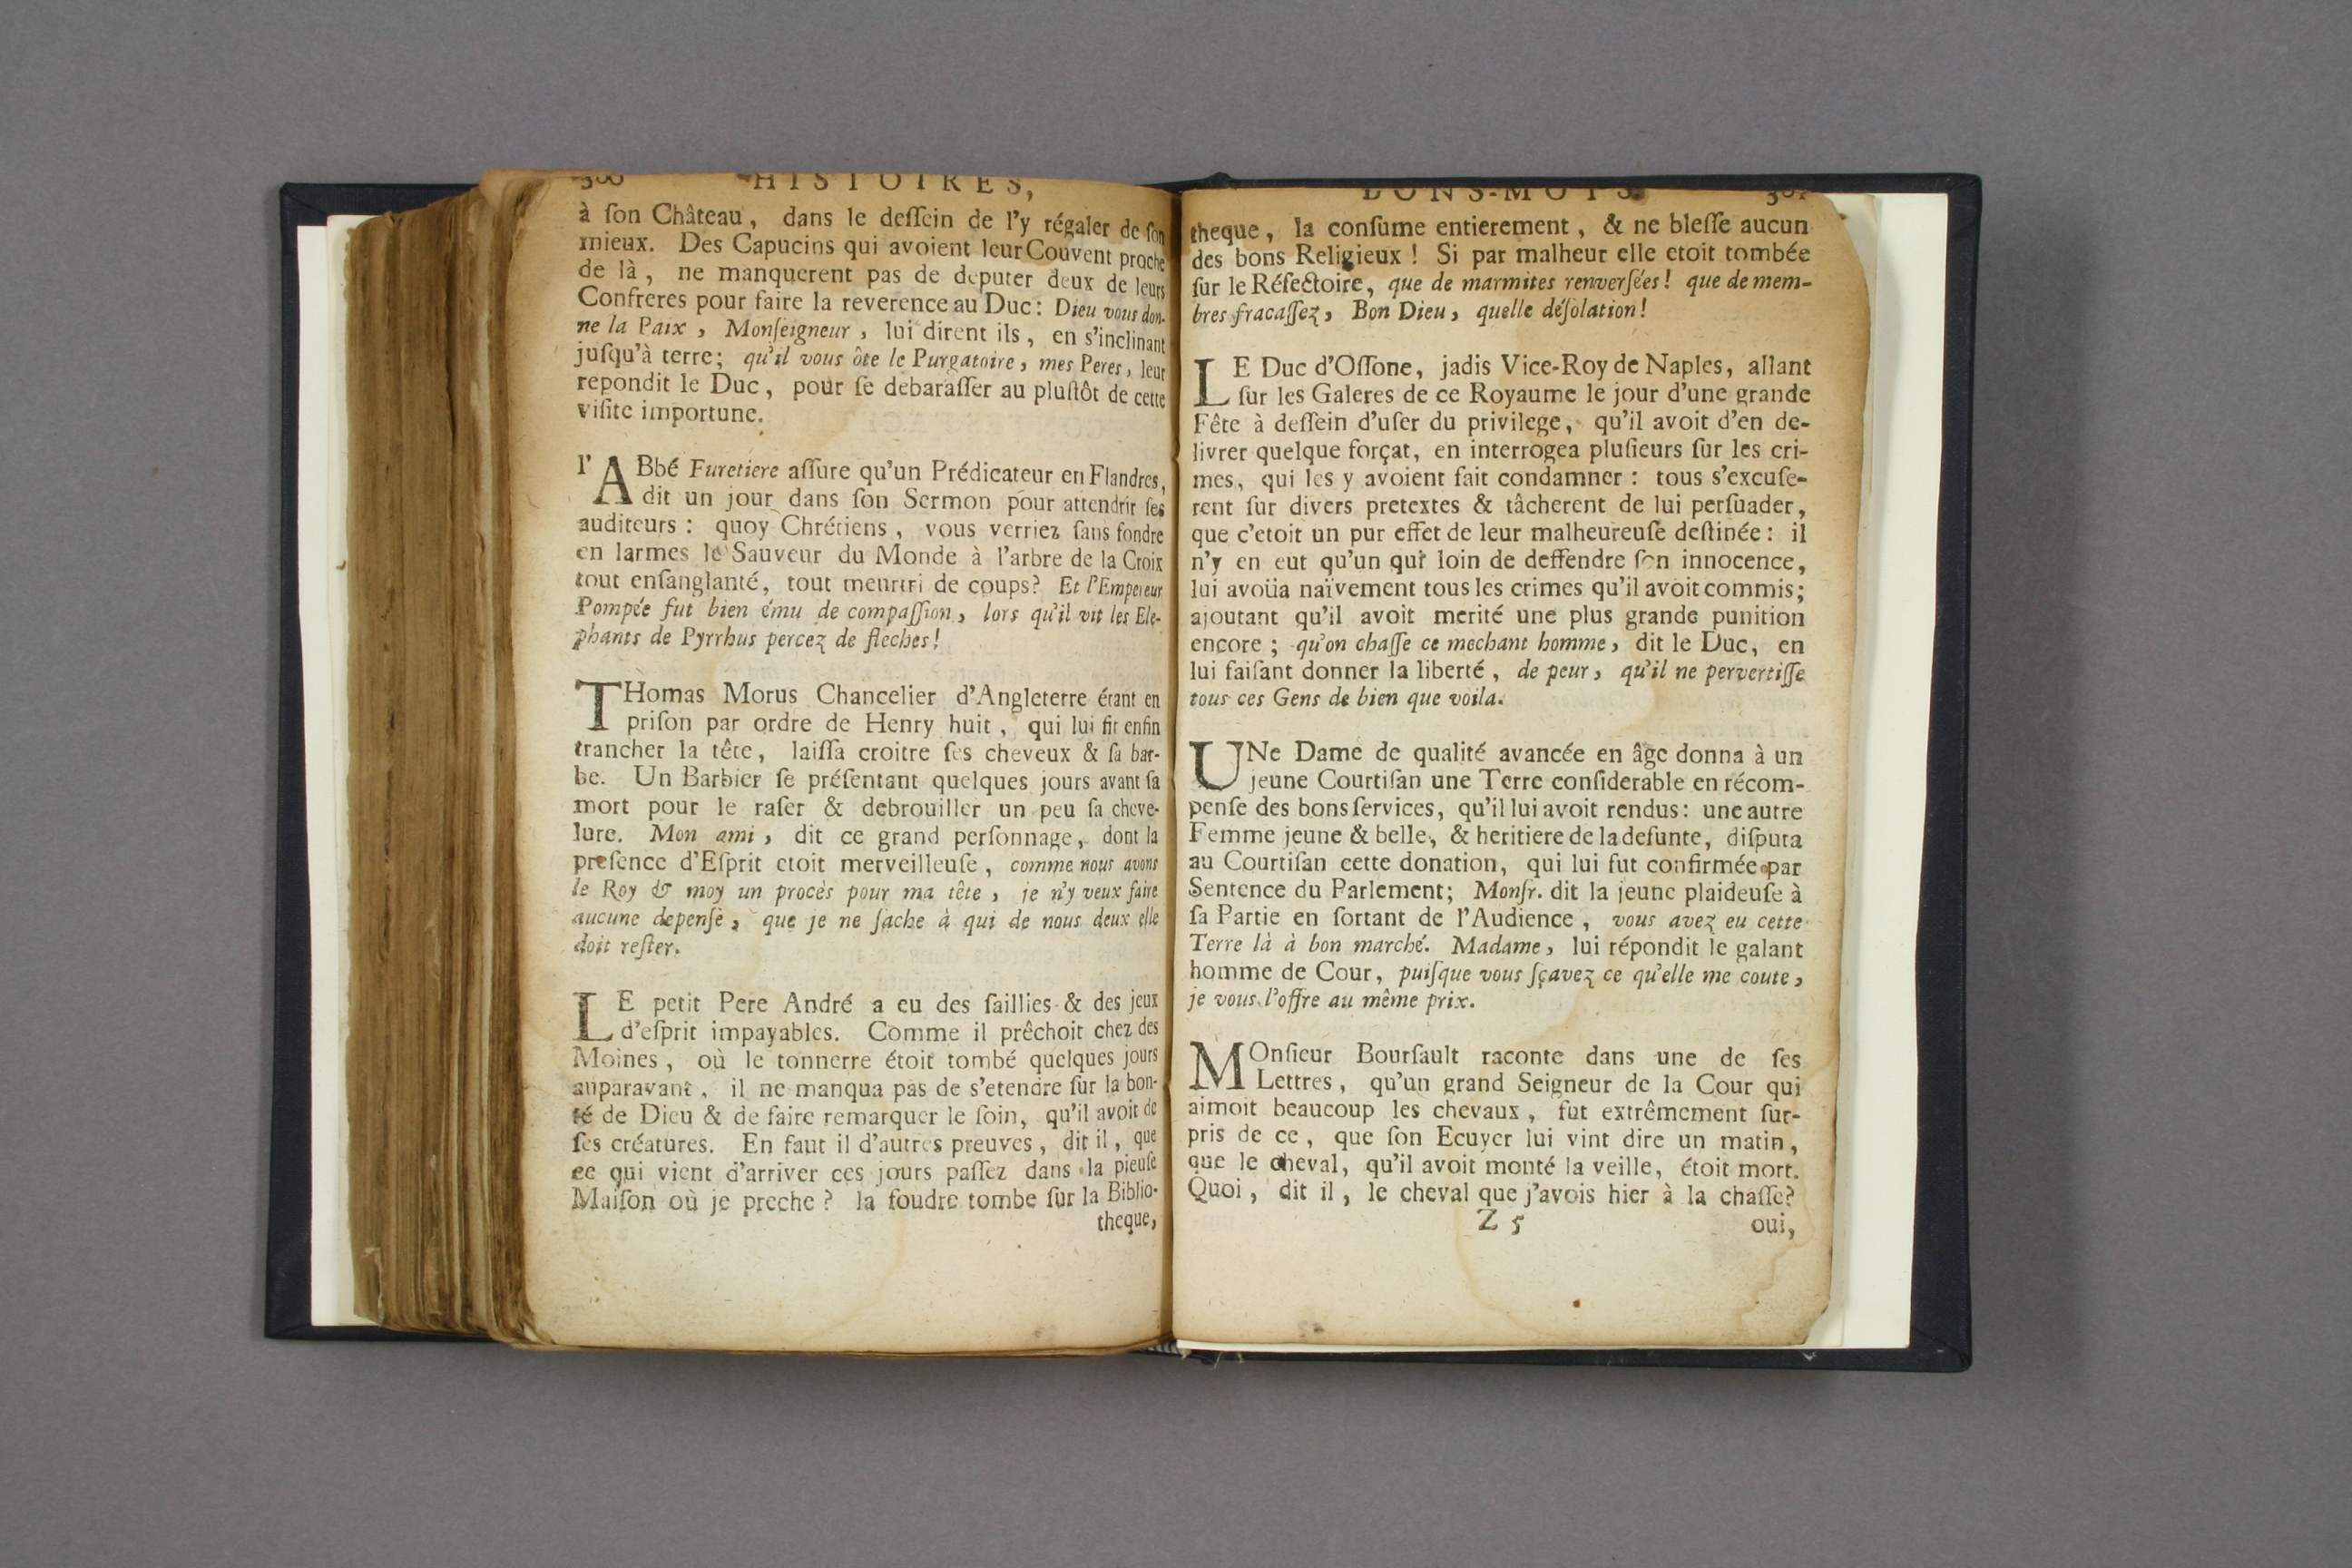 300 HISTOIRES,
à ſon Château, dans le deſſein de l'y régaler de ſon
mieux. Des Capucins qui avoient leur Couvent proche
de là, ne manquerent pas de deputer deux de leurs
Confreres pour faire la reverence au Duc: Dieu vous don-
ne la Paix, Monſeigneur, lui dirent ils, en s'inclinant
juſqu'à terre; qu'il vous ôte le Purgatoire, mes Peres, leur
repondit le Duc, pour ſe debaraſſer au pluſtôt de cette
viſite importune.
l'ABbé Furetiere aſſure qu'un Prédicateur en Flandres,
dit un jour dans ſon Sermon pour attendrir ſes
auditeurs: quoy Chrétiens, vous verriez ſans fondre
en larmes le Sauveur du Monde à l'arbre de la Croix
tout enſanglanté, tout meurtri de coups? Et l'Empereur
Pompée fut bien ému de compaſſion, lors qu'il vit les Ele-
phants de Pyrrhus percez de fleches!
THomas Morus Chancelier d'Angleterre étant en
priſon par ordre de Henry huit, qui lui fit enfin
trancher la tête, laiſſa croitre ſes cheveux & ſa bar-
be. Un Barbier ſe préſentant quelques jours avant ſa
mort pour le raſer & debrouiller un peu ſa cheve-
lure. Mon ami, dit ce grand perſonnage, dont la
preſence d'Eſprit etoit merveilleuſe, comme nous avons
le Roy & moy un procès pour ma tête, je n'y veux faire
aucune depenſe, que je ne ſache à qui de nous deux elle
doit reſter.
LE petit Pere André a eu des ſaillies & des jeux
d'eſprit impayables. Comme il prêchoit chez des
Moines, où le tonnerre étoit tombé quelques jours
auparavant, il ne manqua pas de s'etendre ſur la bon-
té de Dieu & de faire remarquer le ſoin, qu'il avoit de
ſes créatures. En faut il d'autres preuves, dit il, que
ce qui vient d'arriver ces jours paſſez dans la pieuſe
Maiſon où je preche? la foudre tombe ſur la Biblio-
theque,
BONS-MOTS. 361
theque, la conſume entierement, & ne bleſſe aucun
des bons Religieux! Si par malheur elle etoit tombée
ſur le Réfectoire, que de marmites renverſées! que de mem-
bres fracaſſez, Bon Dieu, quelle déſolation!
LE Duc d'Oſſone, jadis Vice-Roy de Naples, allant
ſur les Galeres de ce Royaume le jour d'une grande
Fête à deſſein d'uſer du privilege, qu'il avoit d'en de-
livrer quelque forçat, en interrogea pluſieurs ſur les cri-
mes, qui les y avoient fait condamner: tous s'excuſe-
rent ſur divers pretextes & tâcherent de lui perſuader,
que c'etoit un pur effet de leur malheureuſe deſtinée: il
n'y en eut qu'un qui loin de deffendre ſon innocence,
lui avoüa naïvement tous les crimes qu'il avoit commis;
ajoutant qu'il avoit merité une plus grande punition
encore; qu'on chaſſe ce mechant homme, dit le Duc, en
lui faiſant donner la liberté, de peur, qu'il ne pervertiſſe
tous ces Gens de bien que voila.
UNe Dame de qualité avancée en âge donna à un
jeune Courtiſan une Terre conſiderable en récom-
penſe des bons ſervices, qu'il lui avoit rendus: une autre
Femme jeune & belle, & heritiere de la defunte, diſputa
au Courtiſan cette donation, qui lui fut confirmée par
Sentence du Parlement; Monſr. dit la jeune plaideuſe à
ſa Partie en ſortant de l'Audience, vous avez eu cette
Terre là à bon marché. Madame, lui répondit le galant
homme de Cour, puiſque vous ſçavez ce qu'elle me coute,
je vous l'offre au même prix.
MOnſieur Bourſault raconte dans une de ſes
Lettres, qu'un grand Seigneur de la Cour qui
aimoit beaucoup les chevaux, fut extrêmement ſur-
pris de ce, que ſon Ecuyer lui vint dire un matin,
que le cheval, qu'il avoit monté la veille, étoit mort.
Quoi, dit il, le cheval que j'avois hier à la chaſſe?
Z 5 oui,